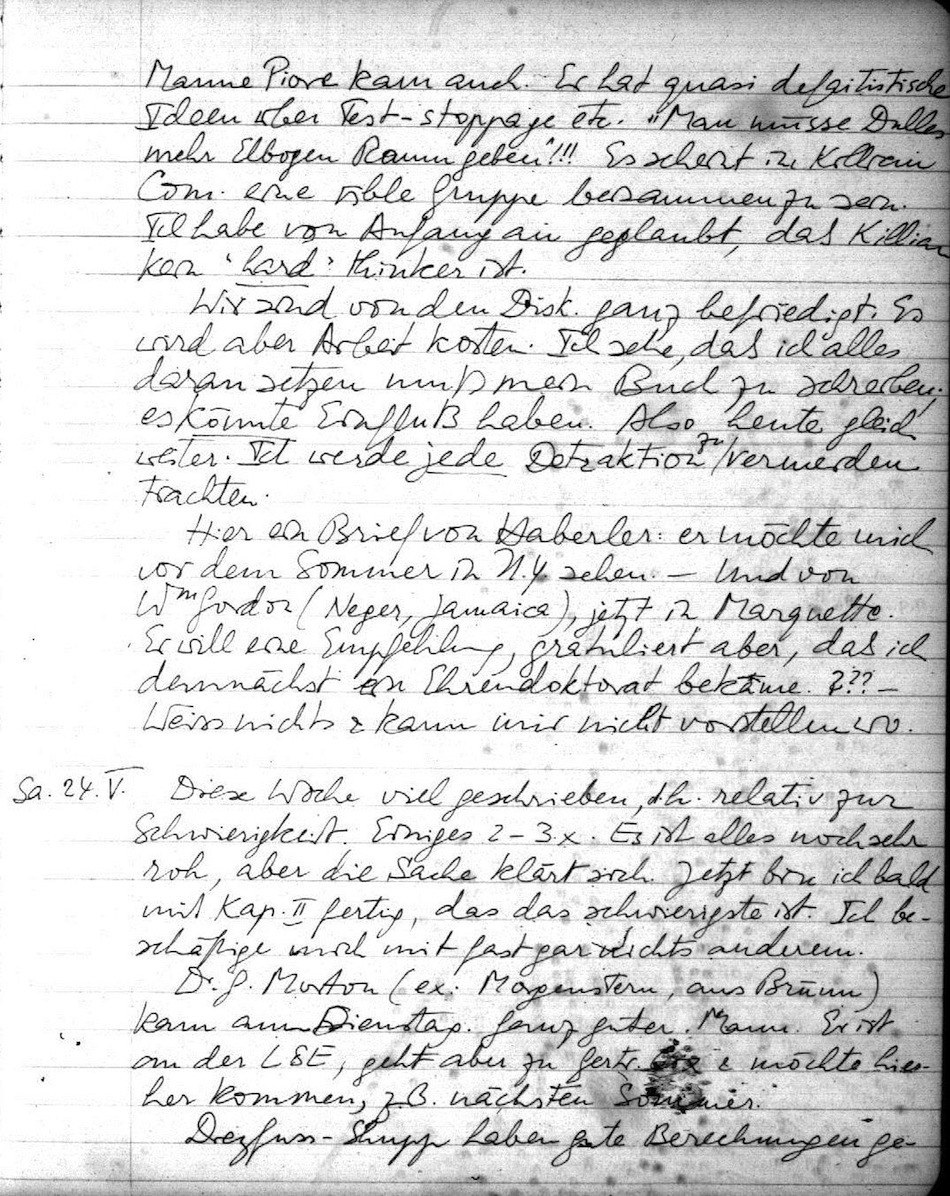 Manne Piore kam auch. Er hat quasi defaitistische
Ideen über Test-stoppage etc. "Man müsse Dulles
mehr Elbogen Raum geben"!!! Es scheint im Killian
Com. eine üble Gruppe beisammen zu sein.
Ich habe von Anfang an geglaubt, dass Killian
kein 'hard' thinker ist.
Wir sind von den Disk. ganz befriedigt. Es
wird aber Arbeit kosten. Ich sehe, dass ich alles
daran setzen muß mein Buch zu schreiben;
es könnte Einfluß haben. Also heute gleich
weiter. Ich werde jede Detraktion zu vermeiden
trachten.
Hier ein Brief von Haberler: er möchte mich
vor dem Sommer in N.Y. sehen. — Und von
Wm Gordon (Neger, Jamaica), jetzt in Marquette.
Er will eine Empfehlung, gratuliert aber, dass ich
demnächst ein Ehrendoktorat bekäme. ??? —
Weiss nichts & kann mir nicht vorstellen wo.
Sa. 24. V. Diese Woche viel geschrieben, d.h. relativ zur
Schwierigkeit. Einiges 2-3 x. Es ist alles noch sehr
roh, aber die Sache klärt sich. Jetzt bin ich bald
mit Kap. II fertig, das das schwierigste ist. Ich be-
schäftige mich mit fast gar nichts anderem.
Dr. G. Morton (ex. Morgenstern, aus Brünn)
kam am Dienstag. Ganz guter Mann. Er ist
an der LSE, geht aber zu & möchte hie-
her kommen, z.B. nächsten Sommer.
Dreyfuss- haben gute Berechnungen ge-